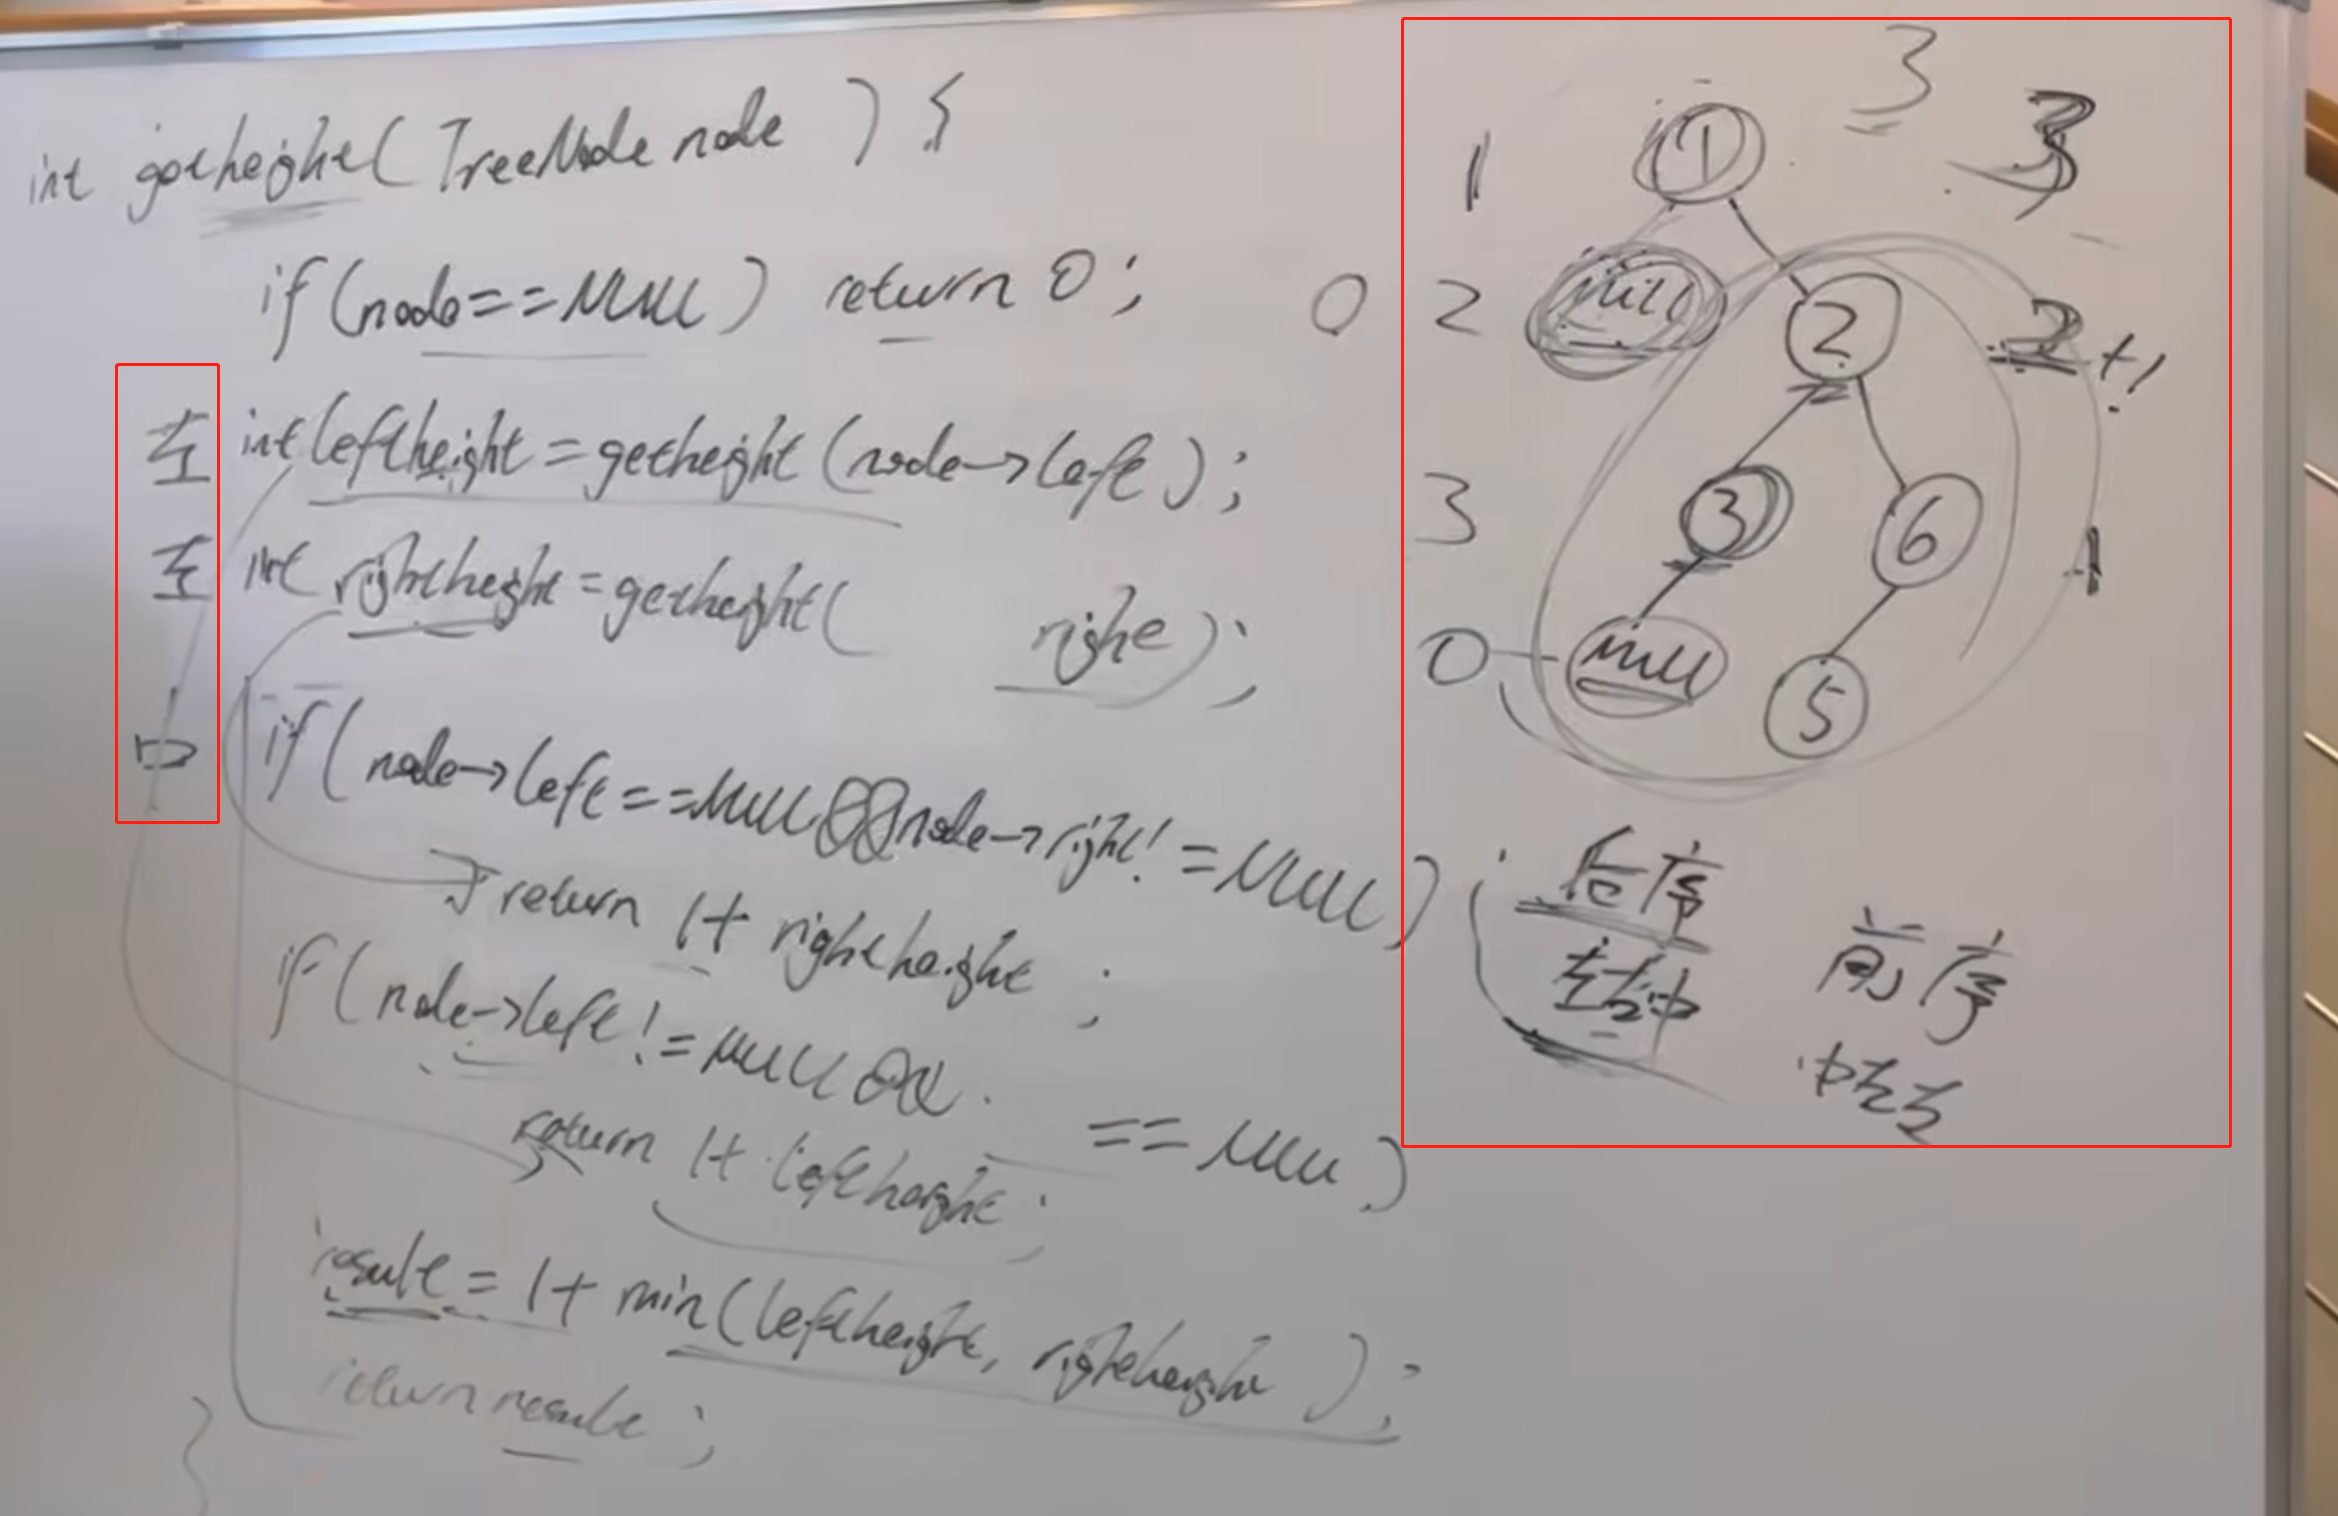 int getheight(TreeNode node) {
if(node==NULL) return 0;
左 int leftheight=getheight(node->left);
int rightheight=getheight( right);
if(node->left==NULL&&node->right!=NULL)
return 1+rightheight;
if(node->left!=NULL&&
==NULL)
return 1+leftheight;
result=1+min(leftheight, rightheight);
return result;
}
3
1 1 3
0 2 null 2 2+1
3 3 6 1
0 null 5
后序 前序
左右中 中左右